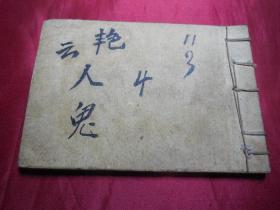 艳
云人鬼
4
113